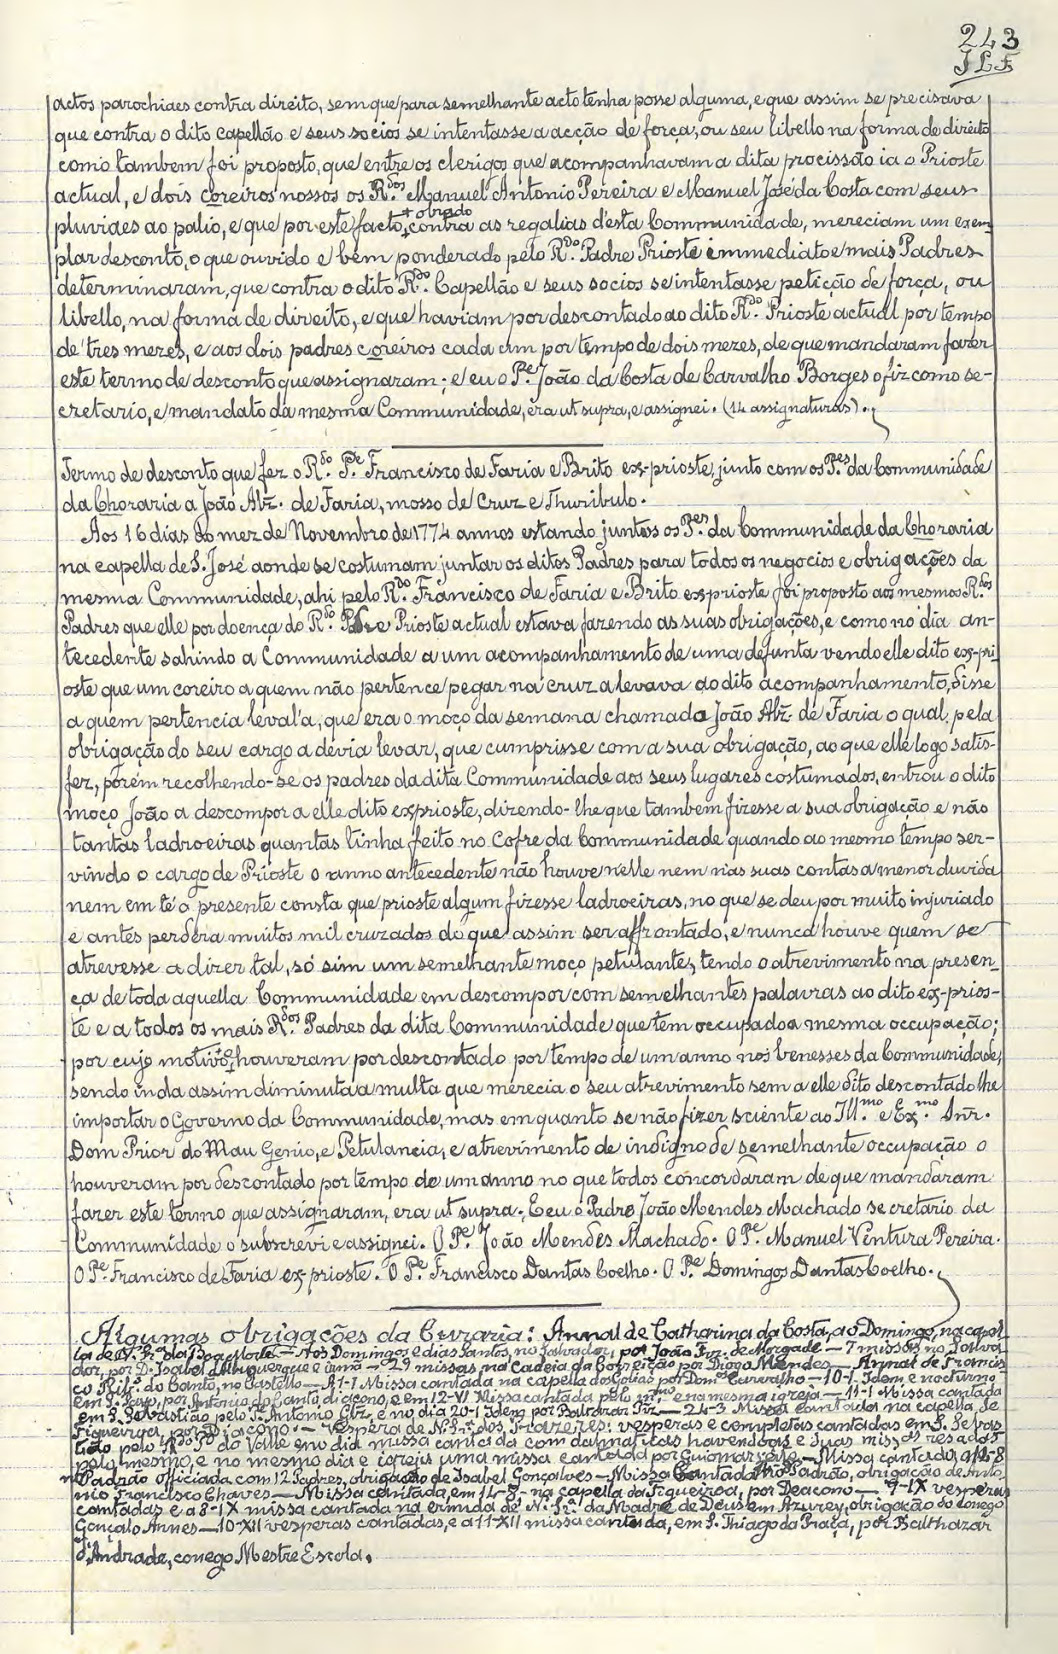 243
J L F
actos parochiaes contra direito, sem que para semelhante acto tenha posse alguma, e que assim se precisava
que contra o dito capellão e seus socios se intentasse a acção de força, ou seu libello na forma de direito
como tambem foi proposto, que entre os clerigos que acompanhavam a dita procissão ia o Prioste
actual, e dois coreiros nossos os R.dos Manuel Antonio Pereira e Manuel José da Costa com seus
pluviaes ao palio, e que por este facto + obrado contra as regalias d'esta Communidade, mereciam um exem-
plar desconto, o que ouvido e bem ponderado pelo R.do Padre Prioste immediato e mais Padres
determinaram, que contra o dito R.do Capellão e seus socios se intentasse petição de força, ou
libello, na forma de direito, e que haviam por descontado ao dito R.do Prioste actual por tempo
de tres mezes, e aos dois padres coreiros cada um por tempo de dois mezes, de que mandaram fazer
este termo de desconto que assignaram; e eu o P.e João da Costa de Carvalho Borges o fiz como se-
cretario, e mandato da mesma Communidade, era ut supra, e assignei. (14 assignaturas).
Termo de desconto que fez o R.do P.e Francisco de Faria e Brito ex-prioste, junto com os P.es da Communidade
da Choraria a João Alz. de Faria, mosso de Cruz e Thuribulo.
Aos 16 dias do mez de Novembro de 1774 annos estando juntos os P.es da Communidade da Choraria
na capella de S. José aonde se costumam juntar os ditos Padres para todos os negocios e obrigações da
mesma Communidade, ahi pelo R.do Francisco de Faria e Brito exprioste foi proposto aos mesmos R.dos
Padres que elle por doença do R.do Padre Prioste actual estava fazendo as suas obrigações, e como no dia an-
tecedente sahindo a Communidade a um acompanhamento de uma defunta vendo elle dito ex-pri-
oste que um coreiro a quem não pertence pegar na cruz a levava ao dito acompanhamento, disse
a quem pertencia leval'a, que era o moço da semana chamado João Alz. de Faria o qual, pela
obrigação do seu cargo a devia levar, que cumprisse com a sua obrigação, ao que elle logo satis-
fez, porém recolhendo-se os padres da dita Communidade aos seus lugares costumados, entrou o dito
moço João a descompor a elle dito exprioste, dizendo-lhe que tambem fizesse a sua obrigação e não
tantas ladroeiras quantas tinha feito no Cofre da Communidade quando ao mesmo tempo ser-
vindo o cargo de Prioste o anno antecedente não houve nelle nem nas suas contas a menor duvida
nem em té o presente consta que prioste algum fizesse ladroeiras, no que se deu por muito injuriado
e antes perdera muitos mil cruzados do que assim ser affrontado, e nunca houve quem se
atrevesse a dizer tal, só sim um semelhante moço petulante, tendo o atrevimento na presen-
ça de toda aquella Communidade em descompor com semelhantes palavras ao dito ex-prios-
te e a todos os mais R.dos Padres da dita Communidade que tem occupado a mesma occupação;
por cujo motivo + o houveram por descontado por tempo de um anno nos benesses da Communidade,
sendo inda assim diminuta a multa que merecia o seu atrevimento sem a elle dito descontado lhe
importar o Governo da Communidade, mas em quanto se não fizer sciente ao Ill.mo e Ex.mo Snr.
Dom Prior do Mau Genio, e Petulancia, e atrevimento de indigno de semelhante occupação o
houveram por descontado por tempo de um anno no que todos concordaram de que mandaram
fazer este termo que assignaram, era ut supra. E eu o Padre João Mendes Machado secretario da
Communidade o subscrevi e assignei. O P.e João Mendes Machado. O P.e Manuel Ventura Pereira.
O P.e Francisco de Faria ex-prioste. O P.e Francisco Dantas Coelho. O P.e Domingos Dantas Coelho.
Algumas obrigações da Curaria: Annal de Catharina da Costa, aó Domingo, na capel-
la de N. Sr.a da Boa Morte — Aos Domingos e dias santos, no Salvador, por João Frz. de Morgade — 7 missas no Salva-
dor, por D. Isabel d'Albuquerque e irmã — 29 missas na Cadeia da Correição por Diogo Mendes — Annal de Francis-
co Rib.o do Canto, no Castello — A 1-1 Missa cantada na capella do Golias por Dom.os Carvalho — 10-1. Idem, e nocturno
em S. Payo, por Antonio do Canto, diacono, e em 12-VI Missa cantada pelo m.mo e na mesma igreja — 11-1 Missa cantada
em S. Sebastião pelo P.e Antonio Glz. e no dia 20-1 Idem por Balthazar Frz — 24-3 Missa cantada na capella de
Figueiroa, por Diacono — Vespera de N. Sr.a dos Prazeres: vesperas e completas cantadas em S. Sebas-
tião pelo R.do P.e do Valle e no dia missa cantada com dalmaticas havendo-as e duas missas resadas
pelo mesmo, e no mesmo dia e igreja uma missa cantada por Guiomar — Missa cantada a 14-8
no Padrão officiada com 12 Padres, obrigação de Isabel Gonçalves — Missa cantada no Padrão, obrigação de Anto-
nio Francisco Chaves — Missa cantada, em 14-8- na capella da Figueiroa, por Deacono — 7-IX vesperas
cantadas e a 8-IX missa cantada na ermida de N. Sr.a da Madre de Deus em Azurey, obrigação do conego
Gonçalo Annes — 10-XII vesperas cantadas, e a 11-XII missa cantada, em S. Thiago da Praça, por Balthazar
d'Andrade, conego Mestre Escola.